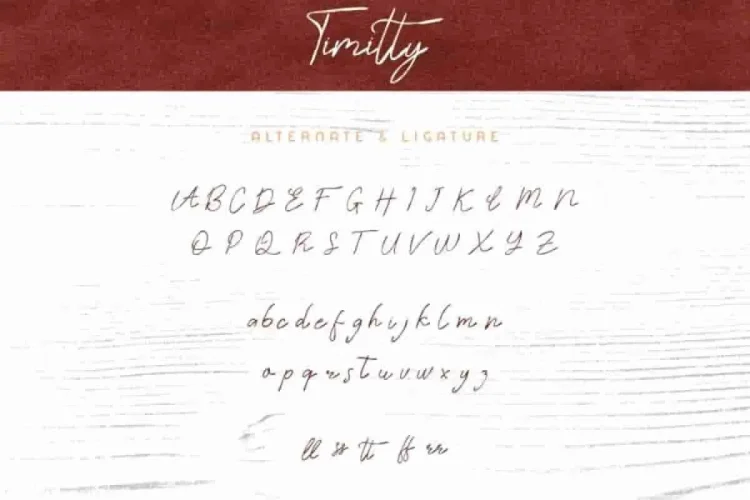 Timitty
ALTERNATE & LIGATURE
A B C D E F G H I J K L M N
O P Q R S T U V W X Y Z
a b c d e f g h i j k l m n
o p q r s t u v w x y z
ll ss tt ff rr